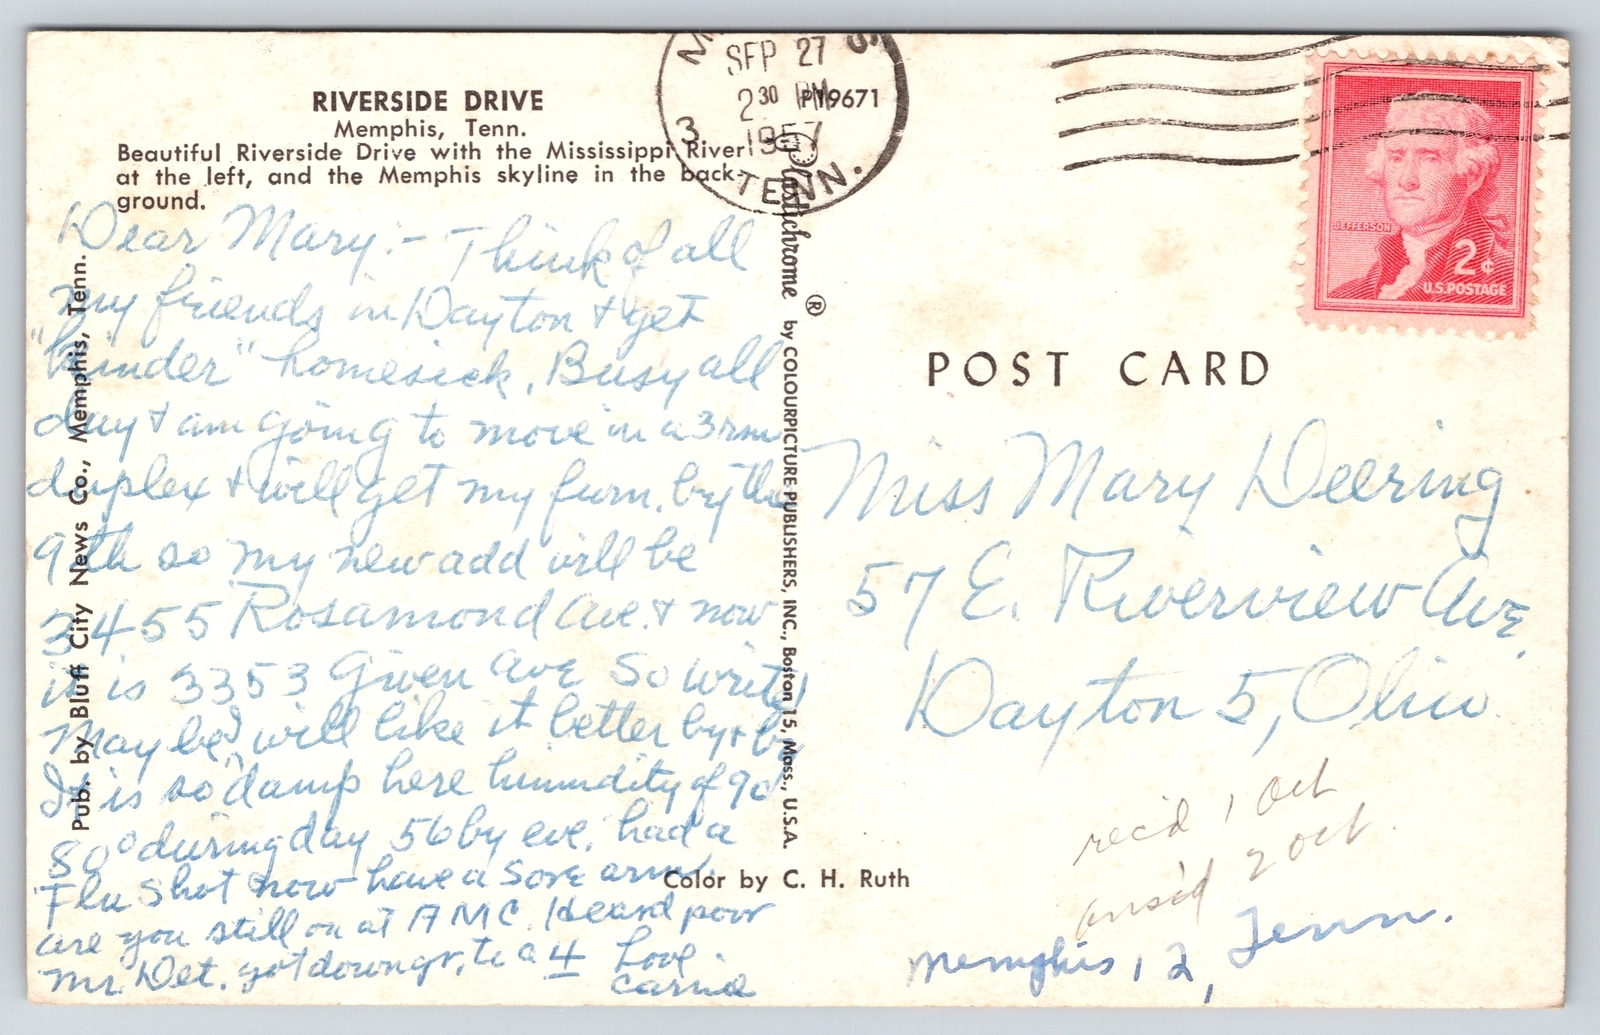 RIVERSIDE DRIVE
Memphis, Tenn.
Beautiful Riverside Drive with the Mississippi River
at the left, and the Memphis skyline in the back-
ground.
Dear Mary:- Think of all
my friends in Dayton & get
"kinder" homesick. Busy all
day & am going to move in a 3 rm
duplex & will get my furn. by the
9th so my new add will be
3455 Rosamond Ave. & now
it is 3353 Given Ave So write
May be I will like it better by & by
It is so damp here humidity of 90
80° during day 56 by eve. had a
Flu Shot now have a Sore arm.
are you still on at AMC. Heard poor
Mr. Det. got downgr. to a 4 Love.
Carrie
Pub. by Bluff City News Co., Memphis, Tenn.
SEP 27
2 30 PM
1957
3
TENN.
P19671
Plastichrome ® by COLOURPICTURE PUBLISHERS, INC., Boston 15, Mass., U.S.A.
Color by C. H. Ruth
JEFFERSON
2¢
U.S. POSTAGE
POST CARD
Miss Mary Deering
57 E. Riverview Ave.
Dayton 5, Ohio
rec'd 1 Oct
ans'd 2 Oct
Memphis, 12, Tenn.